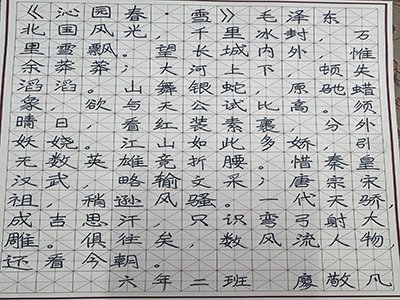 《沁园春·雪》毛泽东
北国风光，千里冰封，万
里雪飘。望长城内外，惟
余莽莽；大河上下，顿失
滔滔。山舞银蛇，原驰蜡
象，欲与天公试比高。须
晴日，看红装素裹，分外
妖娆。江山如此多娇，引
无数英雄竞折腰。惜秦皇
汉武 略输文采；唐宗宋
祖，稍逊风骚。一代天骄，
成吉思汗 只识弯弓射大
雕。俱往矣，数风流人物，
还看今朝。
六年二班 廖